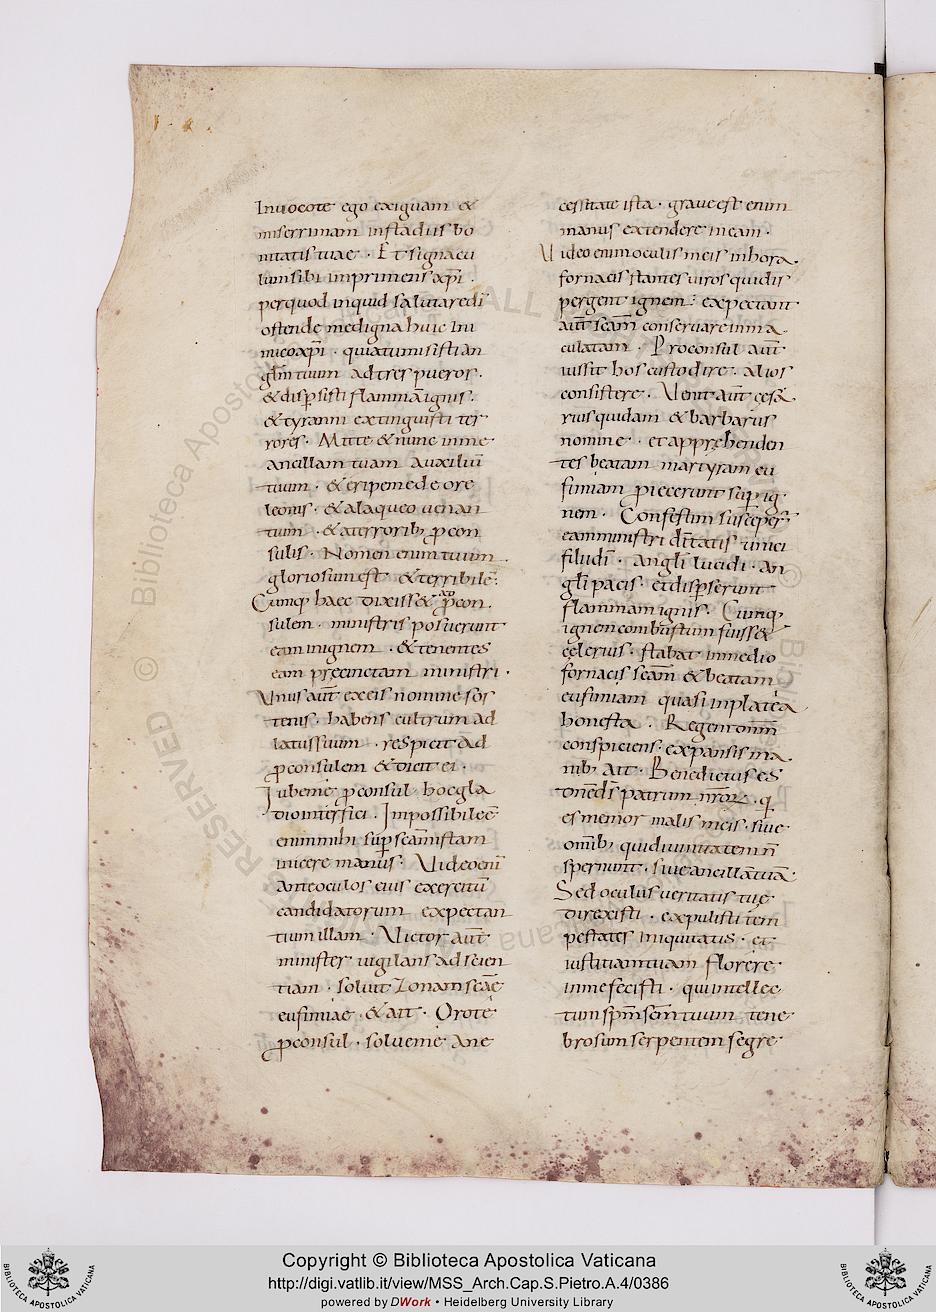 Inuocote ego exiguam &
miserrimam instadiis bo
nitatis tuae · Et signacu
lum sibi imprimens xp̄i ·
per quod inquid salutare dī
ostende me digna huic Ini
mico xp̄i · quia tu misisti an
glm̄ tuum ad tres pueros ·
& disp̄sisti flammā ignis ·
& tyranni extinguisti ter
rores · Mitte & nunc in me
ancillam tuam auxiliū
tuum · & eripe me de ore
leonis · & a laqueo uenan
tium · & a terrorib; p̄con
sulis · Nomen enim tuum
gloriosum est & terribile ·
Cumq; haec dixiss& ap̄ p̄con
sulem · ministris posuerunt
eam in ignem · & tenentes
eam ministri ·
Unus aut̄ ex eis nomine sos
tenis · habens cultrum ad
latus suum · respicit ad
p̄consulem & dicit ei ·
Iube me p̄consul hoc gla
dio interfici · Impossibile ē
enim mihi sup̄ sc̄am istam
inicere manus · Uideo eni
ante oculos eius exercitū
candidatorum expectan
tium illam · Uictor aut̄
minister uigilans ad scien
tiam · soluit zonam sc̄ae
eufimiae · & ait · Orote
p̄consul · solue me a ne
cessitate ista · graue est enim
manus extendere in eam ·
Uideo enim oculis meis in hora
fornacis stantes uiros qui dis
pergent ignem · expectant
aut̄ sc̄am conseruare inma
culatam · Proconsul aut̄
iussit hos custodire · alios
consistere · Uenit aut̄ cesa
rius quidam & barbarus
nomine · et apprehenden
tes beatam martyram eu
fimiam proiecerunt sup̄ ig
nem · Confestim susceper̄
eam ministri diuinitatis unici
filii dī · angl̄i lucidi · an
gl̄i pacis et disp̄serunt
flammam ignis · Cumq;
ignem combustum fuiss&
celerius · stabat in medio
fornacis sc̄am & beatam
eufimiam quasi in platea
honesta · Regem omn̄m
conspiciens · expansis ma
nib; ait · Benedictus es
dn̄e ds̄ patrum nr̄or̄ · q
es memor malis meis · siue
omib; qui diuinitatem n̄
spernunt · siue ancillā tuā ·
Sed oculus ueritatis tue
direxisti · expulisti tem
pestates iniquitatis · et
iustitiam tuam florere
in me fecisti · qui intellec
tum sp̄m sc̄m tuum tene
brosum serpentem segre
© Biblioteca Apostolica Vaticana
ALL RIGHTS RESERVED
Copyright © Biblioteca Apostolica Vaticana
http://digi.vatlib.it/view/MSS_Arch.Cap.S.Pietro.A.4/0386
powered by DWork • Heidelberg University Library
BIBLIOTECA APOSTOLICA VATICANA
BIBLIOTECA APOSTOLICA VATICANA